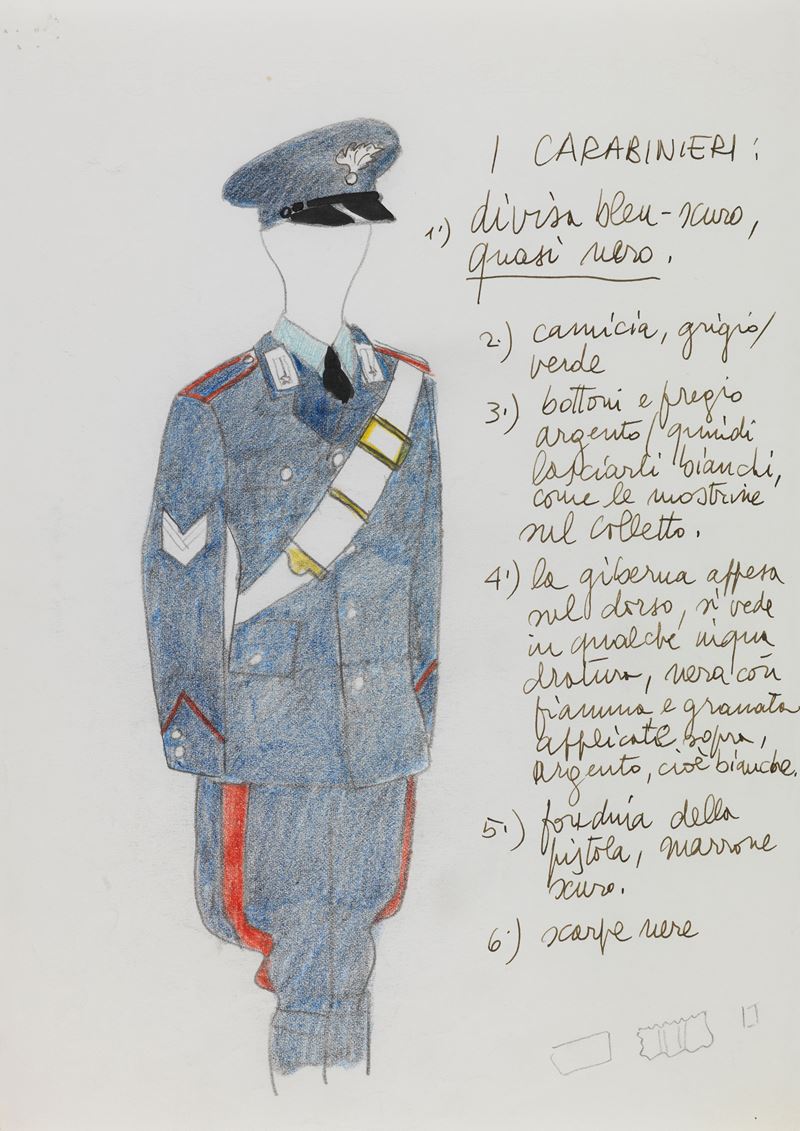 I CARABINIERI:
1°) divisa bleu-scuro,
quasi nero.
2.) camicia, grigio/
verde
3°) bottoni e fregio
argento/quindi
lasciarli bianchi,
come le mostrine
sul colletto.
4°) la giberna appesa
sul dorso, si vede
in qualche inqua
dratura, nera con
fiamma e granata
applicate sopra,
argento, cioè bianche.
5°) fondina della
pistola, marrone
scuro.
6°) scarpe nere